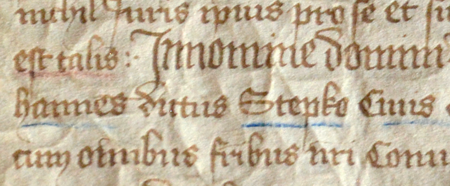 nichil Juris ipius pro se et su
est talis: In nomine domini
hannes dictus Stepko Ciuis
cum omibus fribus nri Conu